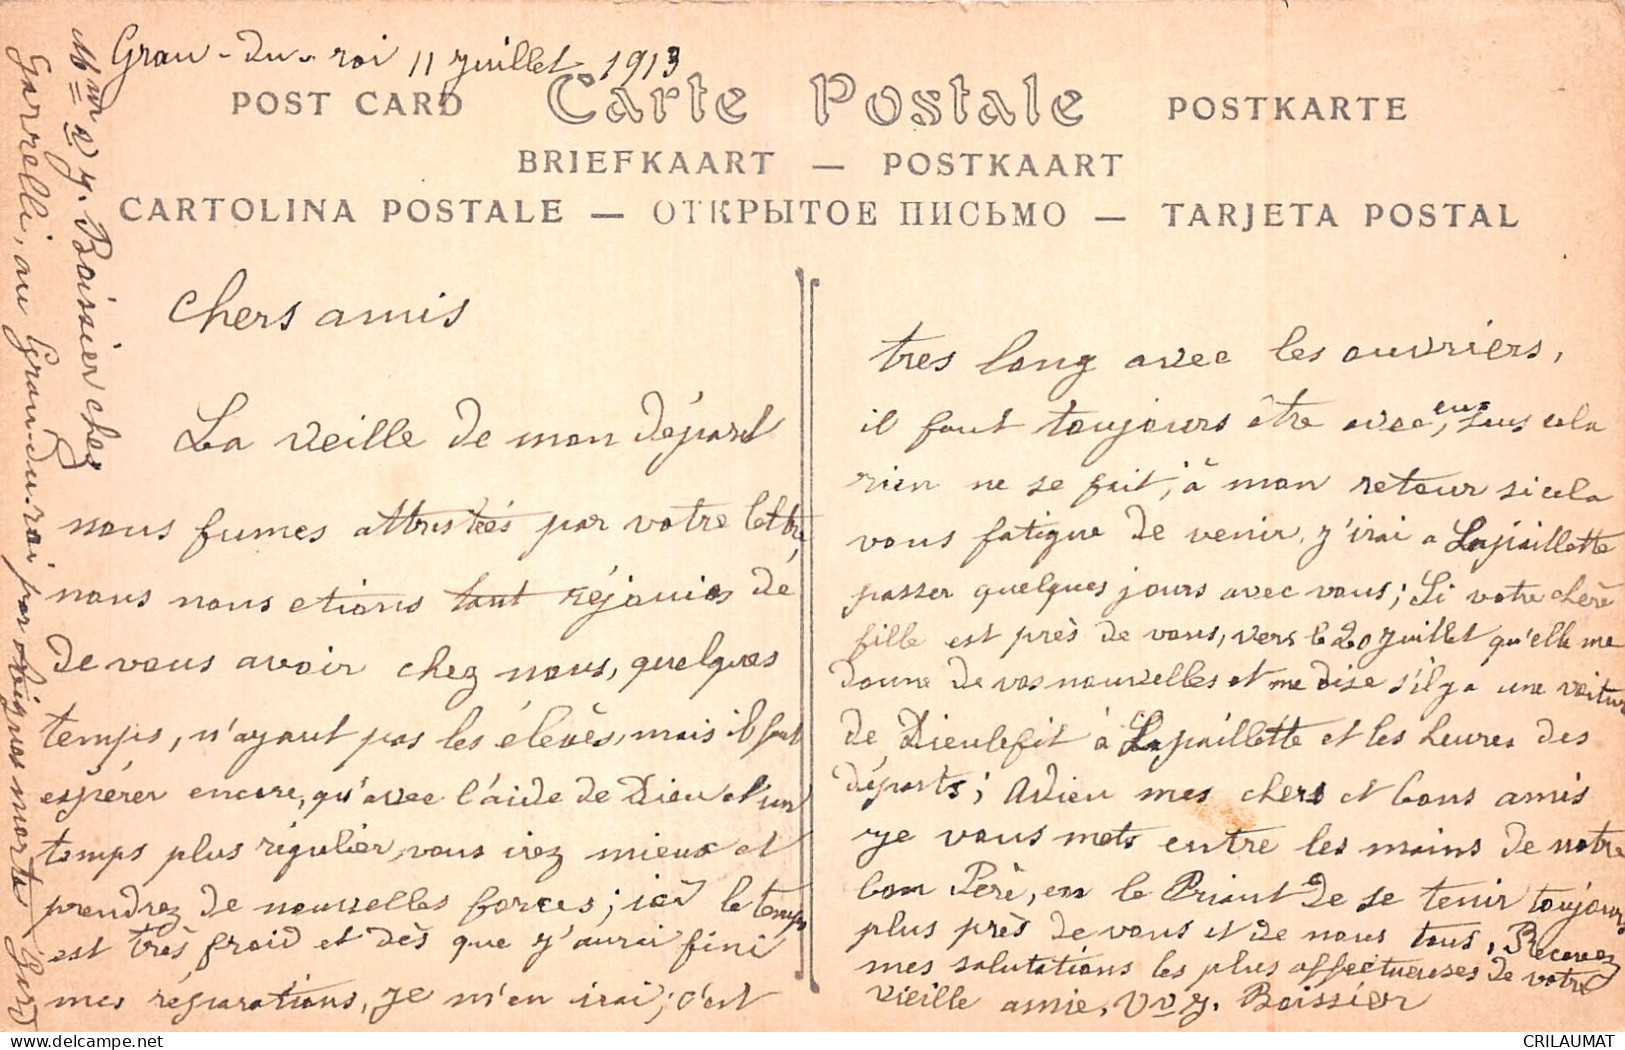 Grau-du-roi 11 juillet 1913
POST CARD Carte Postale POSTKARTE
BRIEFKAART — POSTKAART
CARTOLINA POSTALE — ОТКРЫТОЕ ПИСЬМО — TARJETA POSTAL
Chers amis
La veille de mon départ
nous fumes attristées par votre lettre,
nous nous etions tant réjouies de
de vous avoir chez nous, quelques
temps, n'ayant pas les élevès, mais il faut
espérer encore, qu'avec l'aide de Dieu et un
temps plus régulier, vous irez mieux et
prendrez de nouvelles forces; ici le temps
est très froid et dès que j'aurai fini
mes réparations, je m'en irai; c'est
tres long avec les ouvriers,
il faut toujours être avec eux, sans cela
rien ne se fait, à mon retour si cela
vous fatigue de venir, j'irai a Lapaillette
passer quelques jours avec vous; Si votre chère
fille est près de vous, vers le 20 juillet qu'elle me
donne de vos nouvelles et me dise s'il y a une voiture
de Dieulefit à Lapaillette et les heures des
départs; Adieu mes chers et bons amis
je vous mets entre les mains de notre
bon Père, en le Priant de se tenir toujours
plus près de vous et de nous tous, Recevez
mes salutations les plus affectueuses de votre
vieille amie, Vve J. Boissier
Vve J. Boissier chez
Garrelli, au Grau-du-roi par Aigues mortes Gard
CRILAUMAT